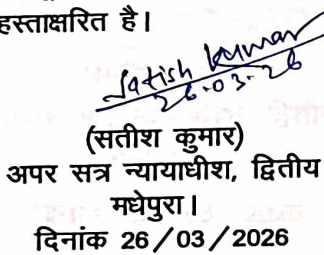 हस्ताक्षरित है।
Satish Kumar
26-03-26
(सतीश कुमार)
अपर सत्र न्यायाधीश, द्वितीय
मधेपुरा।
दिनांक 26/03/2026